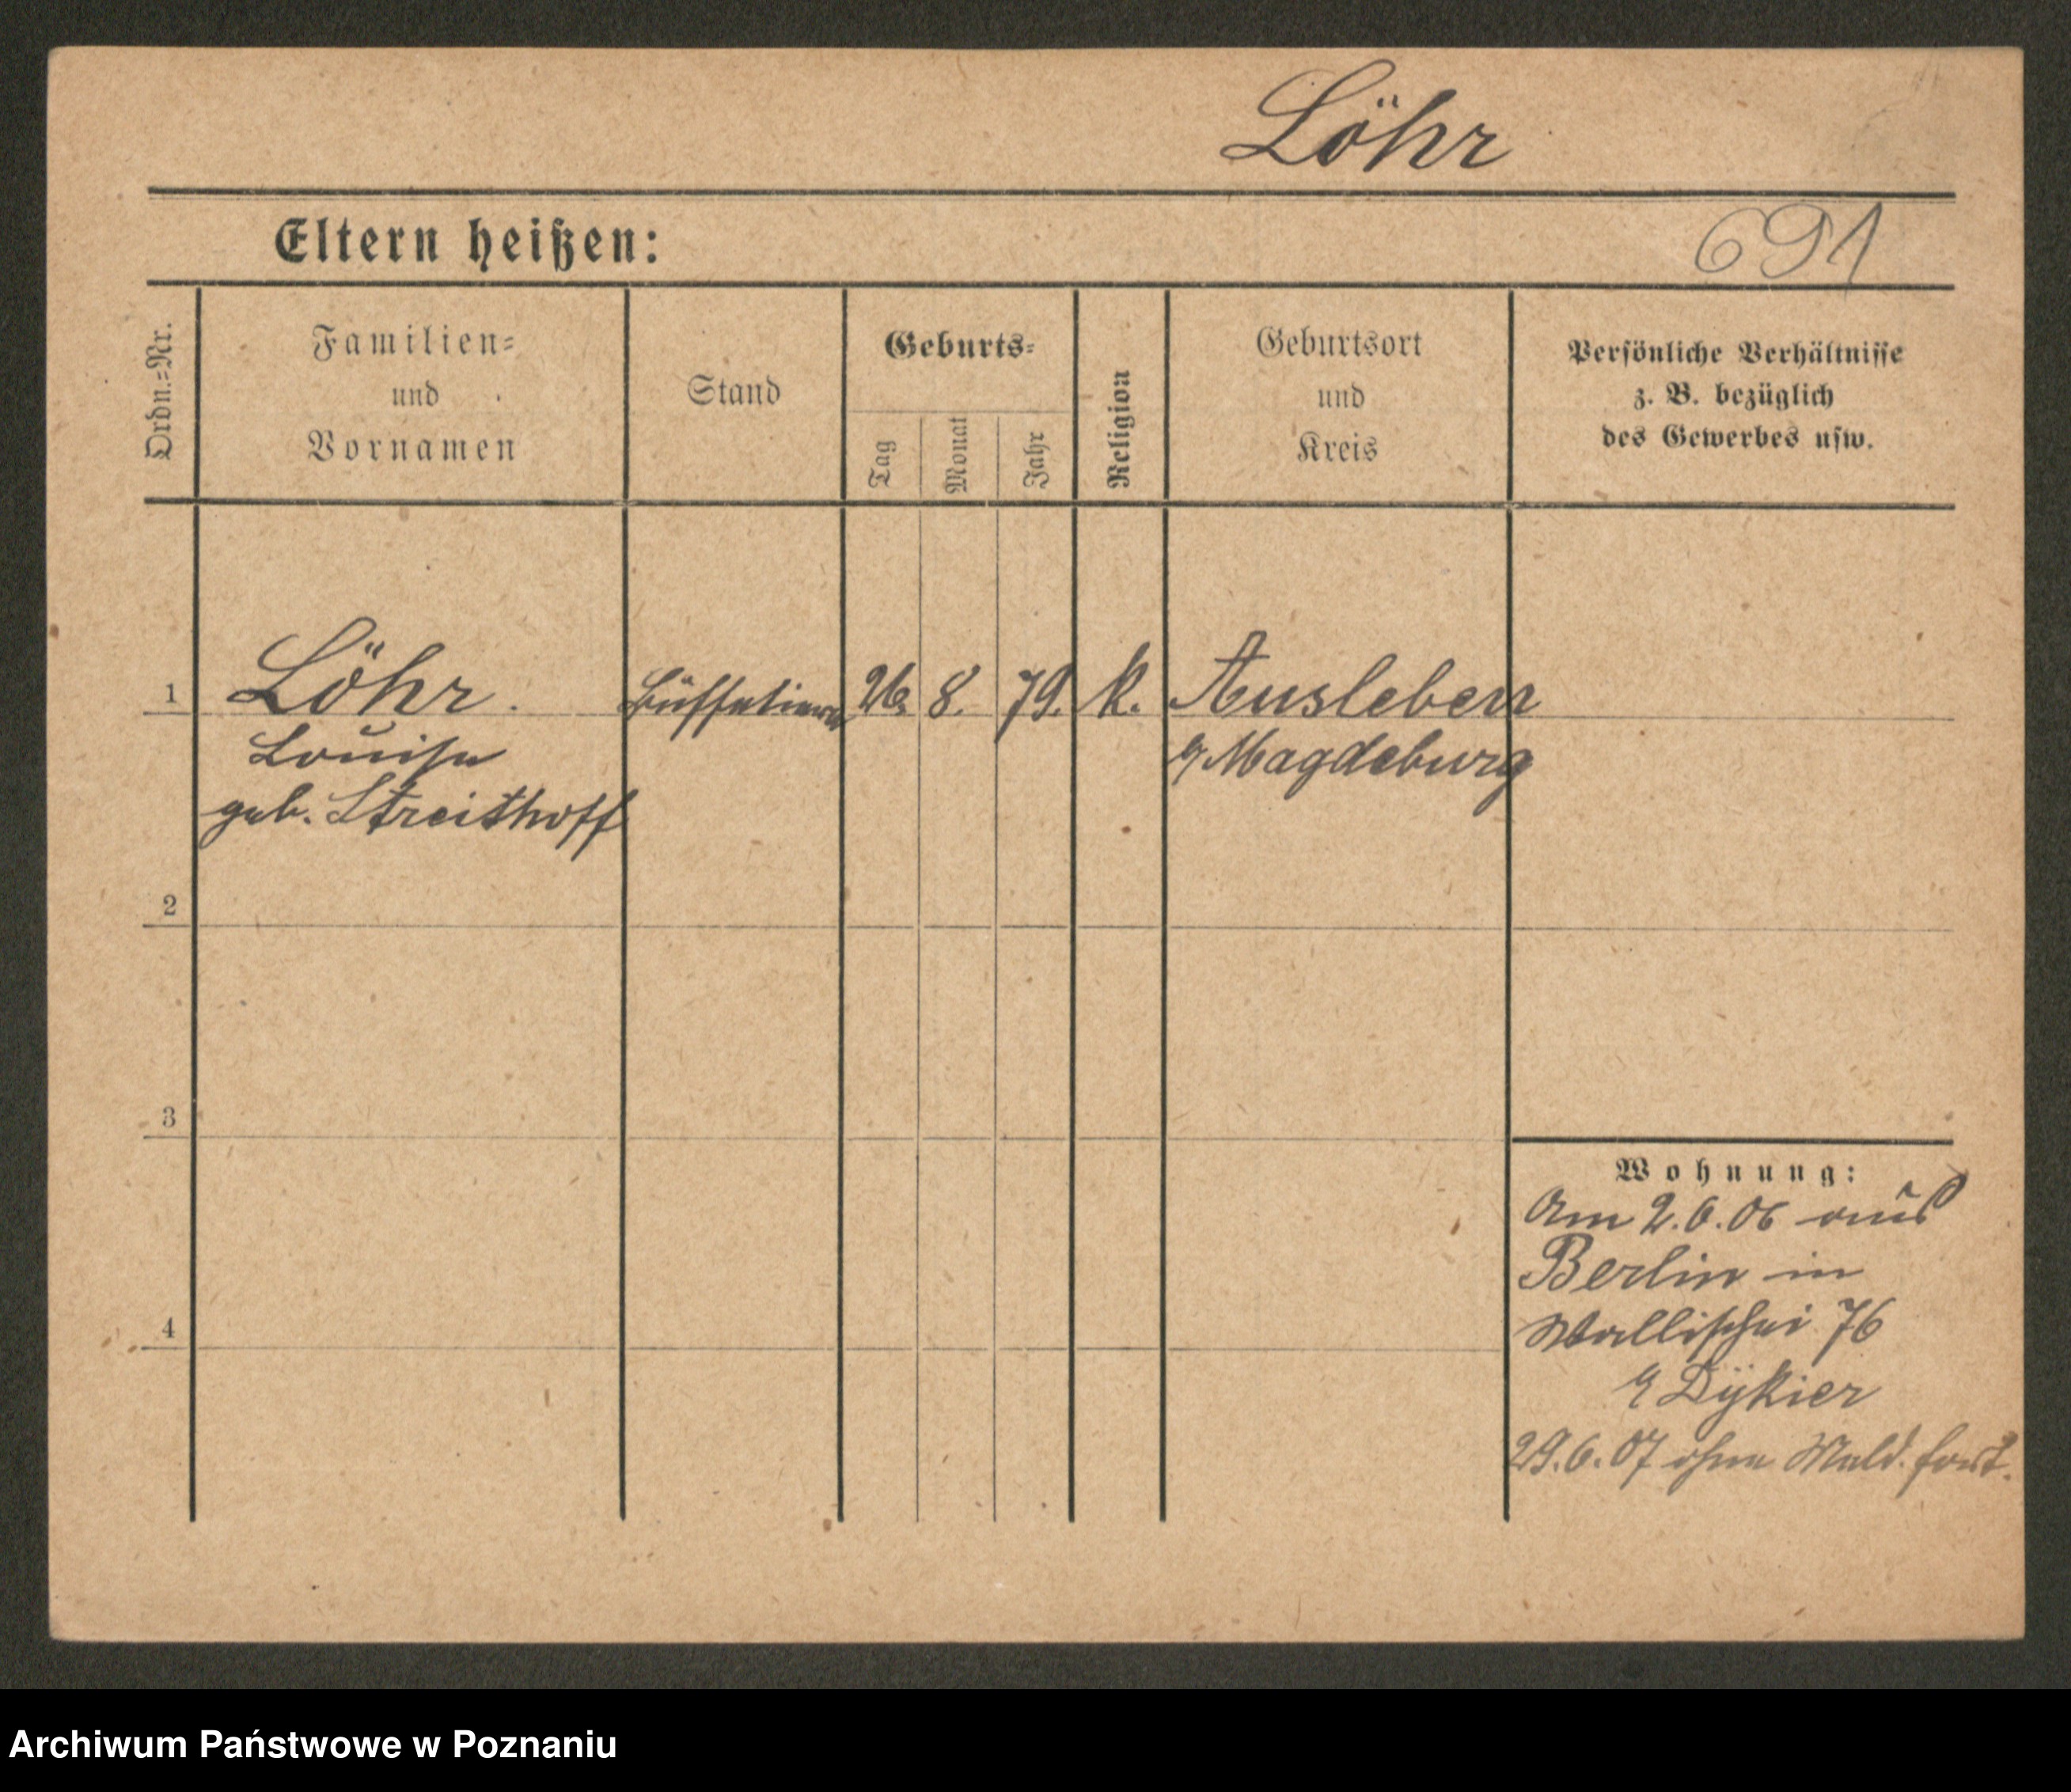 Löhr
Eltern heißen:
691
Ordn.=Nr.
Familien=
und
Vornamen
Stand
Geburts=
Tag
Monat
Jahr
Religion
Geburtsort
und
Kreis
Persönliche Verhältnisse
z. B. bezüglich
des Gewerbes usw.
1
Löhr.
Louise
geb. Streithoff
26. 8. 79. k.
Ausleben
Magdeburg
2
3
4
Wohnung:
Am 2.6.06 aus
Berlin in
Wallischei 76
Dÿkier
29.6.07 ohne Meld. fort.
Archiwum Państwowe w Poznaniu